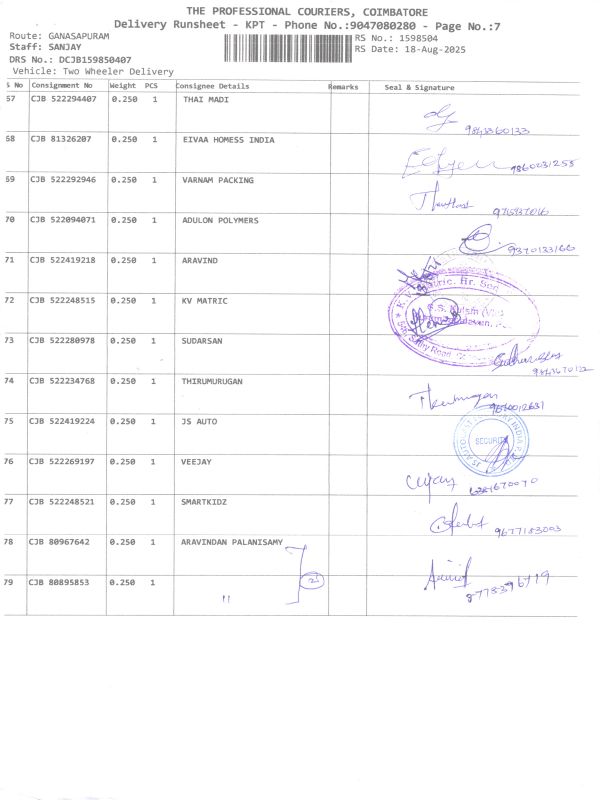 THE PROFESSIONAL COURIERS, COIMBATORE
Delivery Runsheet - KPT - Phone No.:9047080280 - Page No.:7
Route: GANASAPURAM RS No.: 1598504
Staff: SANJAY RS Date: 18-Aug-2025
DRS No.: DCJB159850407
Vehicle: Two Wheeler Delivery
S No Consignment No Weight PCS Consignee Details Remarks Seal & Signature
67 CJB 522294407 0.250 1 THAI MADI
68 CJB 81326207 0.250 1 EIVAA HOMESS INDIA
9860031255
69 CJB 522292946 0.250 1 VARNAM PACKING
70 CJB 522094071 0.250 1 ADULON POLYMERS
9370133166
71 CJB 522419218 0.250 1 ARAVIND
72 CJB 522248515 0.250 1 KV MATRIC
73 CJB 522280978 0.250 1 SUDARSAN
74 CJB 522234768 0.250 1 THIRUMURUGAN
75 CJB 522419224 0.250 1 JS AUTO
SECURITY
76 CJB 522269197 0.250 1 VEEJAY
77 CJB 522248521 0.250 1 SMARTKIDZ
9677183003
78 CJB 80967642 0.250 1 ARAVINDAN PALANISAMY
79 CJB 80895853 0.250 1 " 2
8778396719